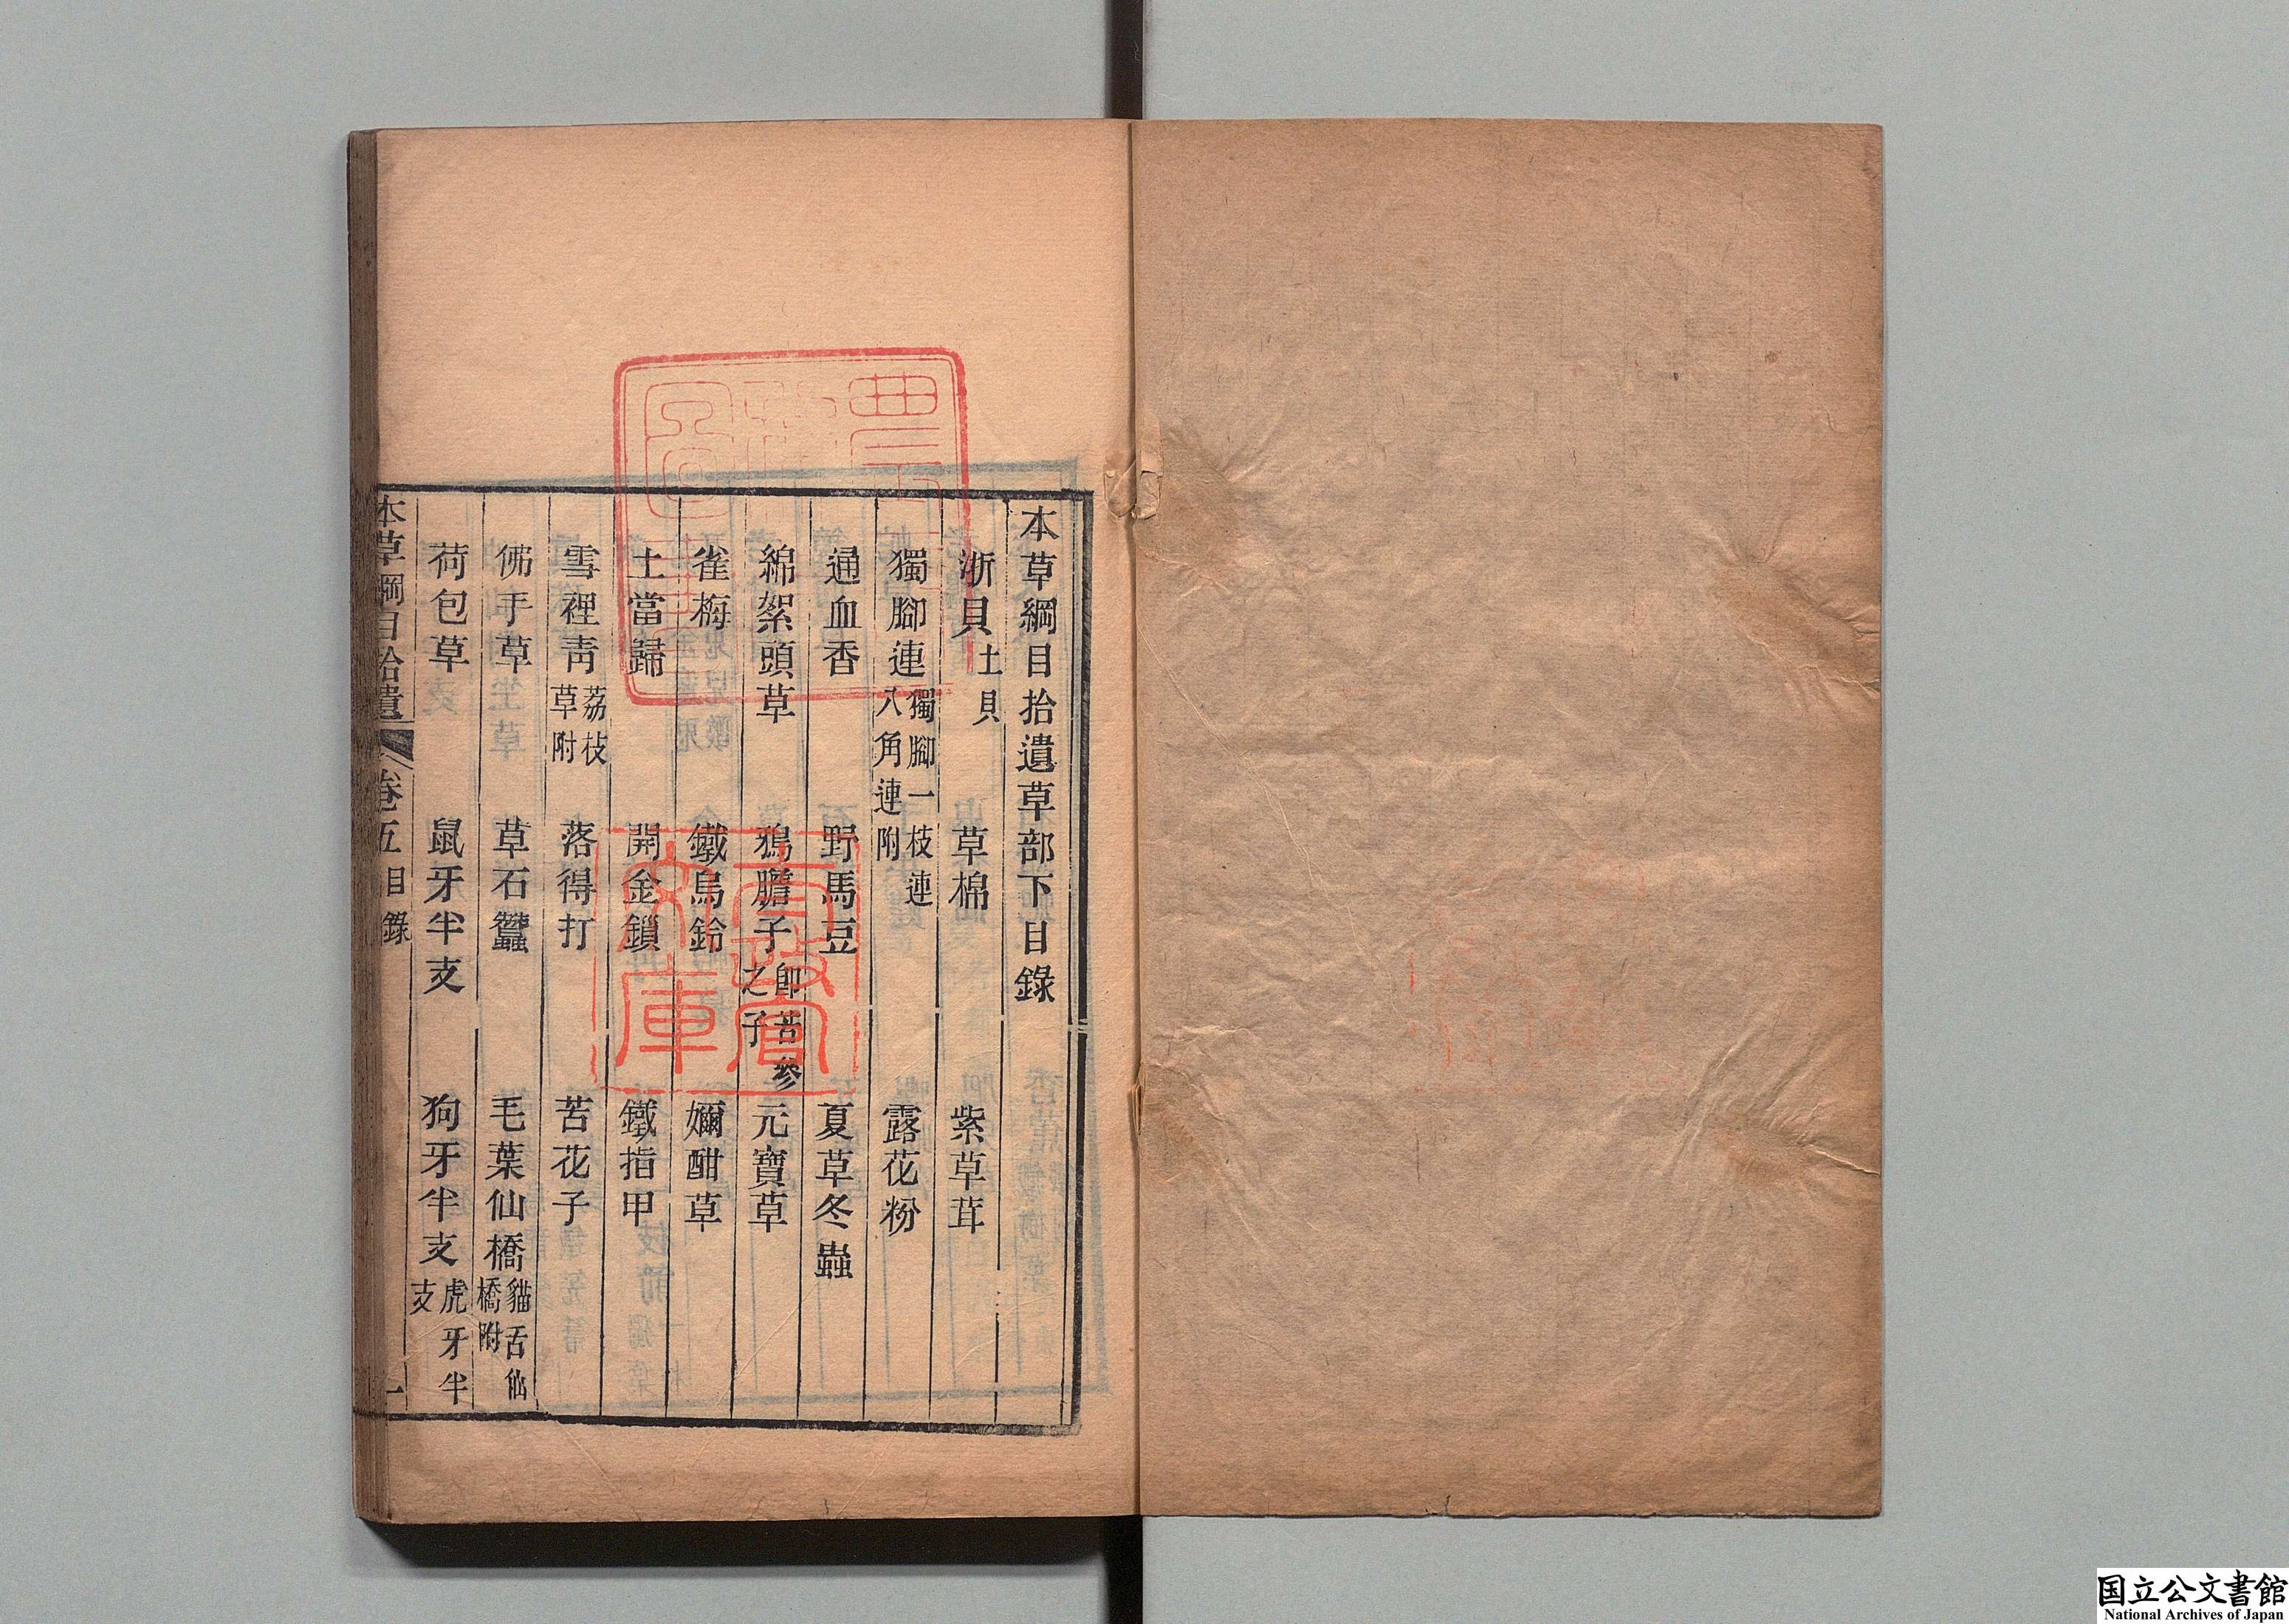 本草綱目拾遺草部下目錄
浙貝 土貝 草棉 紫草茸
獨腳連 獨腳一枝連 八角連附 露花粉
通血香 野馬豆 夏草冬蟲
綿絮頭草 鴉膽子 卽苦參之子 元寶草
雀梅 鐵烏鈴 嬭酣草
土當歸 開金鎖 鐵指甲
雪裡靑 荔枝草附 落得打 苦花子
佛手草 草石蠶 毛葉仙橋 貓舌仙橋附
荷包草 鼠牙半支 狗牙半支 虎牙半支
本草綱目拾遺 卷五目錄 一
農商
官政
文庫
国立公文書館
National Archives of Japan